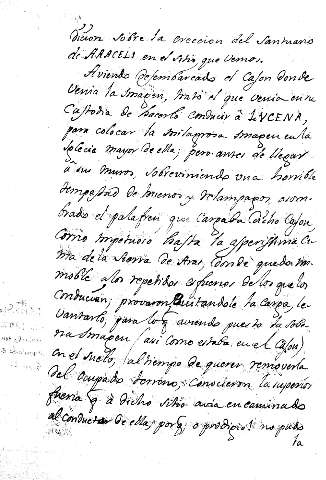 dicion sobre la ereccion del Santuario
de ARACELI en el sitio que vemos.
Aviendo desembarcado el Cajon donde
venia la Imagen, trató el que venia en su
Custodia de hacerlo conducir à LUCENA,
para colocar la milagrosa Imagen en la
Iglecia mayor de ella; pero antes de llegar
à sus muros, sobreviniendo una horrible
tempestad de truenos y relampagos, asom-
brado el palafren que cargaba dicho Cajon,
corrio impetuoso hasta la asperissima Ci-
ma de la Sierra de Aras, donde quedó im-
moble a los repetidos esfuerzos de los que los
conducian; provaron quitandole la Carga, le-
vantarlo, para lo q aviendo puesto la Sobe-
rana Imagen (asi como estaba en el Cajon)
en el suelo, al tiempo de querer removerla
del ocupado terreno, conocieron la superior
fuerza q à dicho sitio avia encaminado
al conductor de ella; porq, o prodigio! no pudo
la